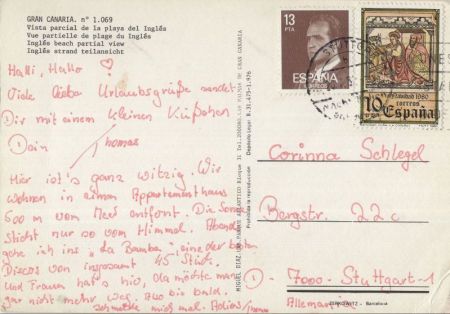 GRAN CANARIA. nº 1.069
Vista parcial de la playa del Inglés
Vue partielle de plage du Inglés
Inglés beach partial view
Inglés strand teilansicht
Halli, Hallo!
Viele liebe Urlaubsgrüße sendet
Dir mit einem kleinen Küßchen
Dein
Thomas
Hier ist's ganz witzig. Wir
wohnen in einem Appartementhaus
600 m vom Meer entfernt. Die Sonne
sticht nur so vom Himmel. Abends
gehe ich ins "La Bamba", eine der besten
Discos von insgesamt 45 Stück.
Und Frauen hat's hio, da möchte man
gar nicht mehr weg. Also bis bald.
mich mal. Adios/Thomas
Prohibida la reproducción
13
PTA
ESPAÑA
CORREOS
Navidad 1980
10
correos
España
Corinna Schlegel
Bergstr. 22c
7000 - Stuttgart-1
Allemania
Barcelona